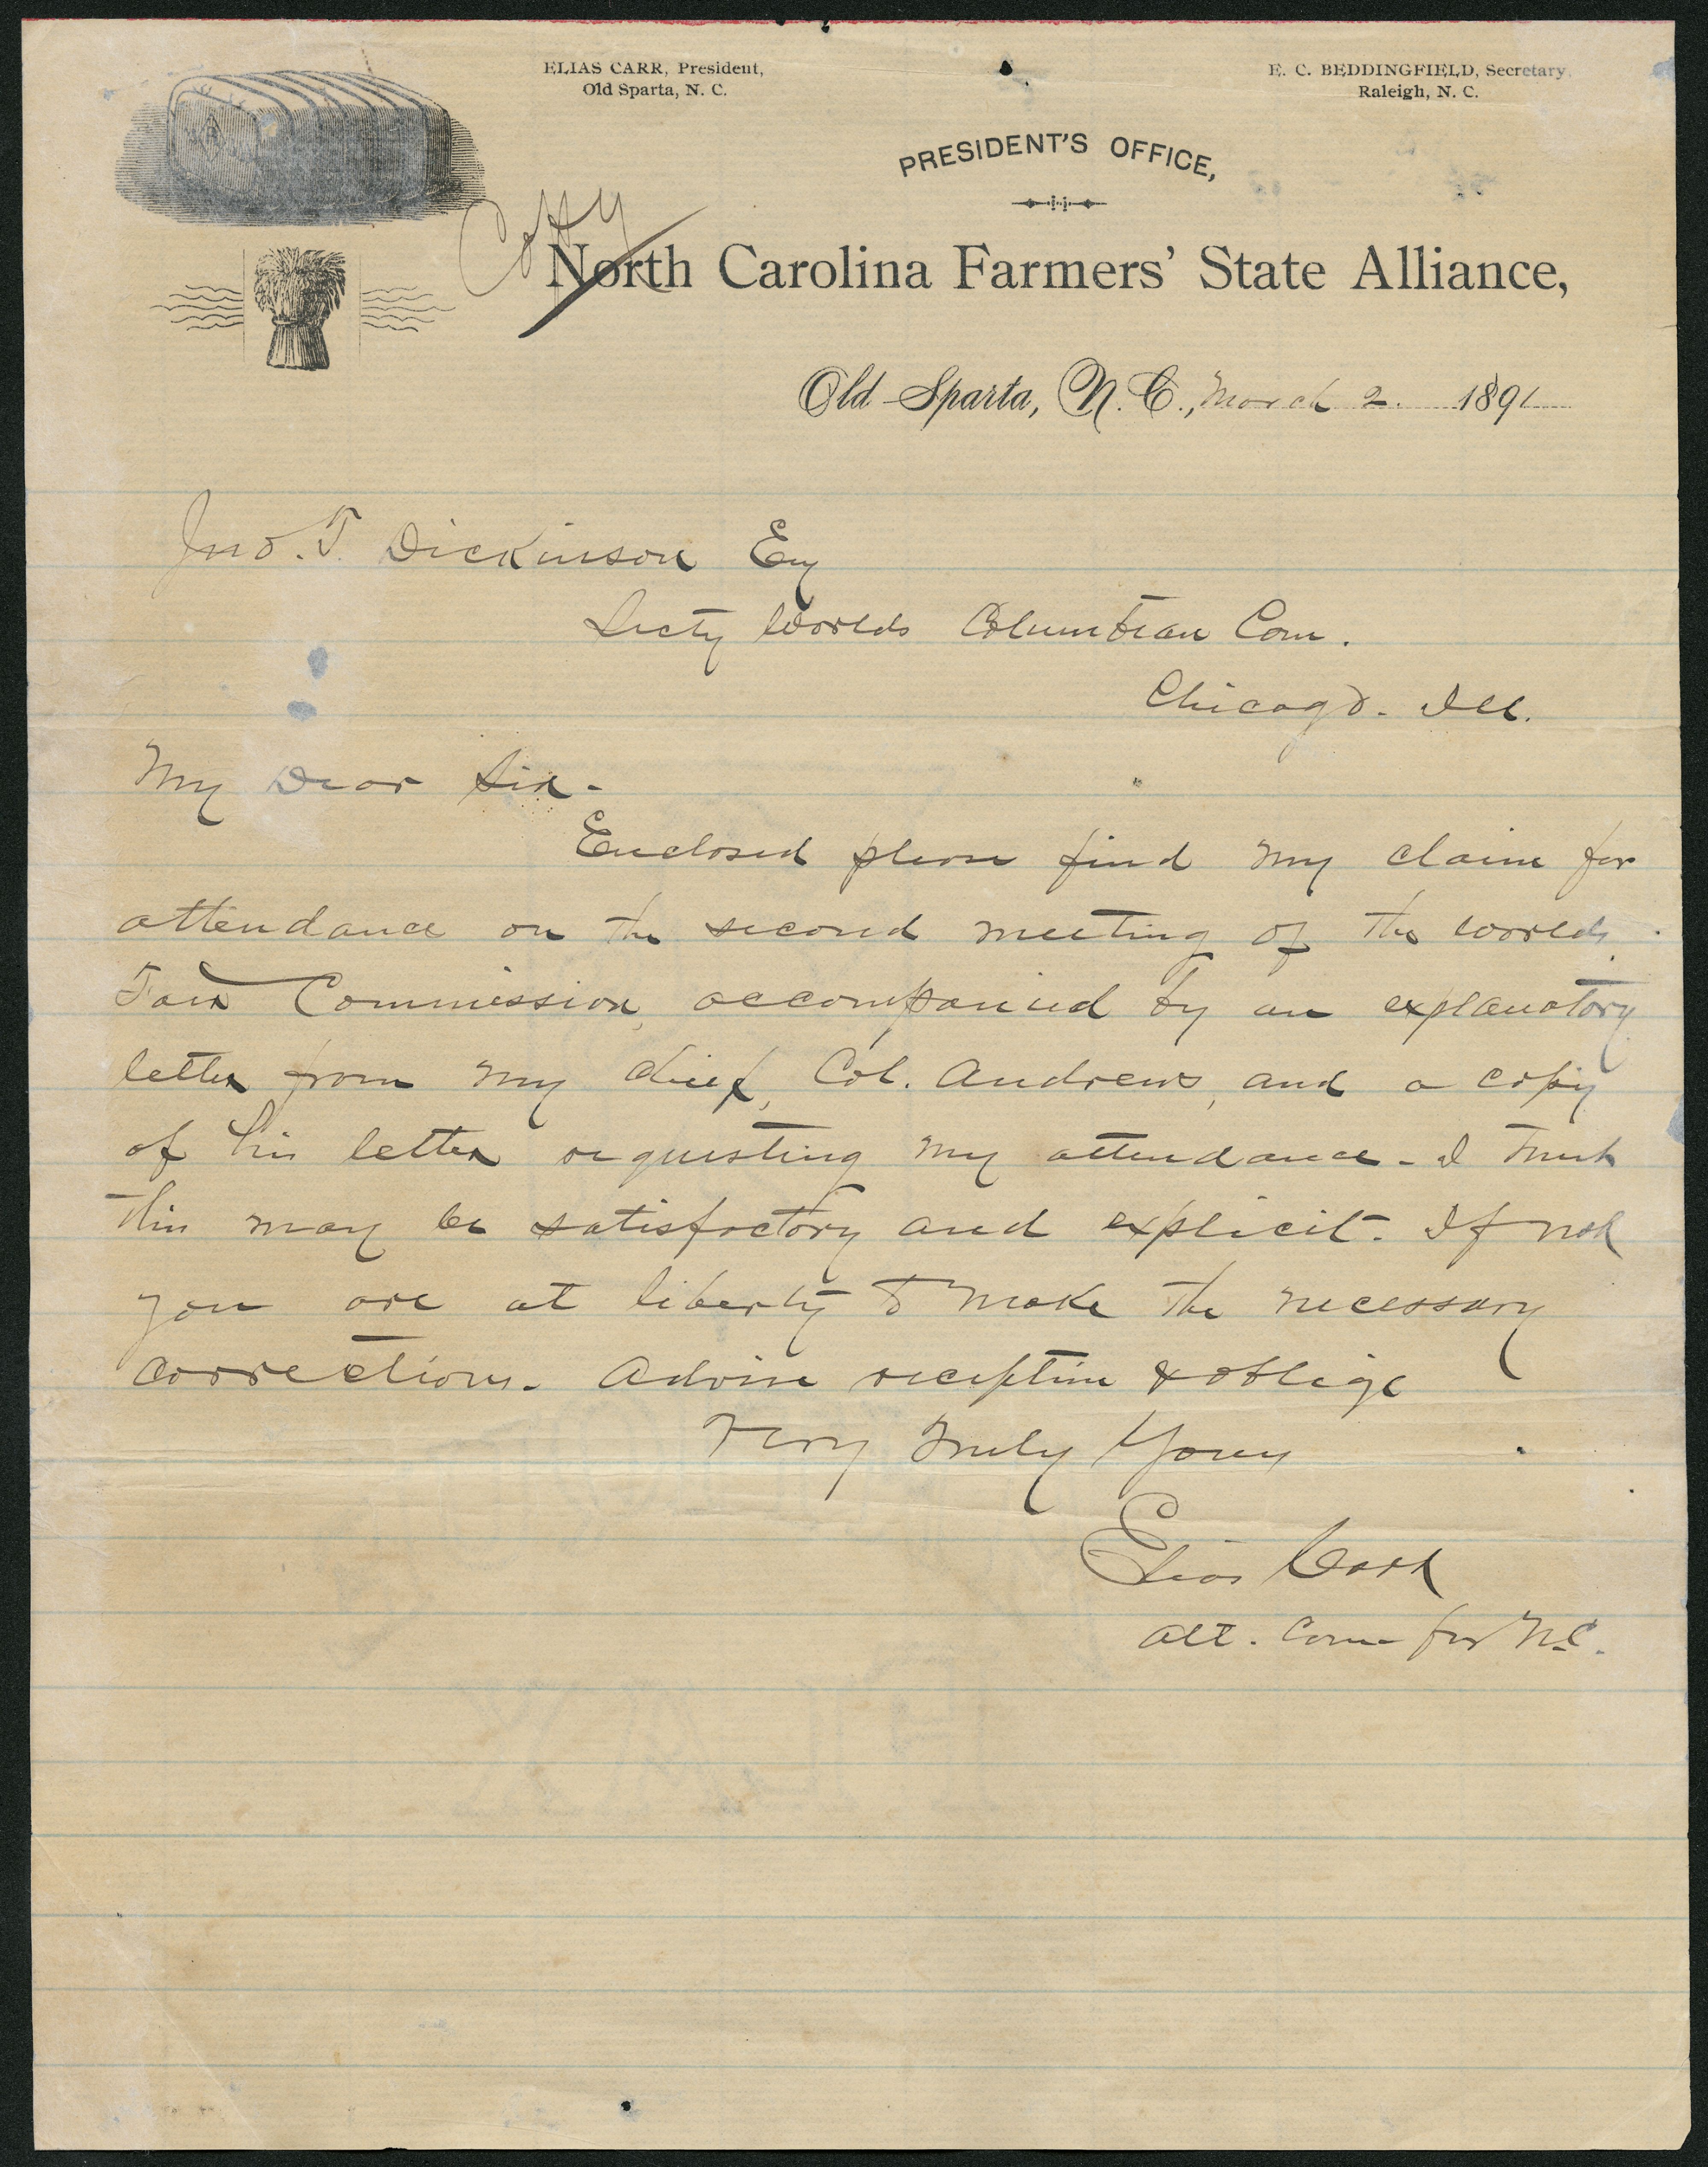 ELIAS CARR, President,
Old Sparta, N. C.
E. C. BEDDINGFIELD, Secretary,
Raleigh, N. C.
PRESIDENT'S OFFICE,
Copy
North Carolina Farmers' State Alliance,
Old Sparta, N. C., March 2. 1891
Jno. T. Dickinson Esq
Secty Worlds Columbian Com.
Chicago. Ill.
My Dear Sir-
Enclosed please find my claim for
attendance on the second meeting of the worlds
Fair Commission, accompanied by an explanatory
letter from my chief, Col. Andrews, and a copy
of his letter requesting my attendance - I trust
this may be satisfactory and explicit. If not
you are at liberty to make the necessary
corrections. Advise reception & oblige
Very Truly Yours
Elias Carr
Alt. Com for N.C.